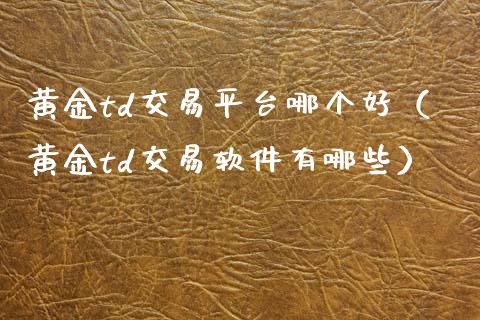 黄金td交易平台哪个好（
黄金td交易软件有哪些）